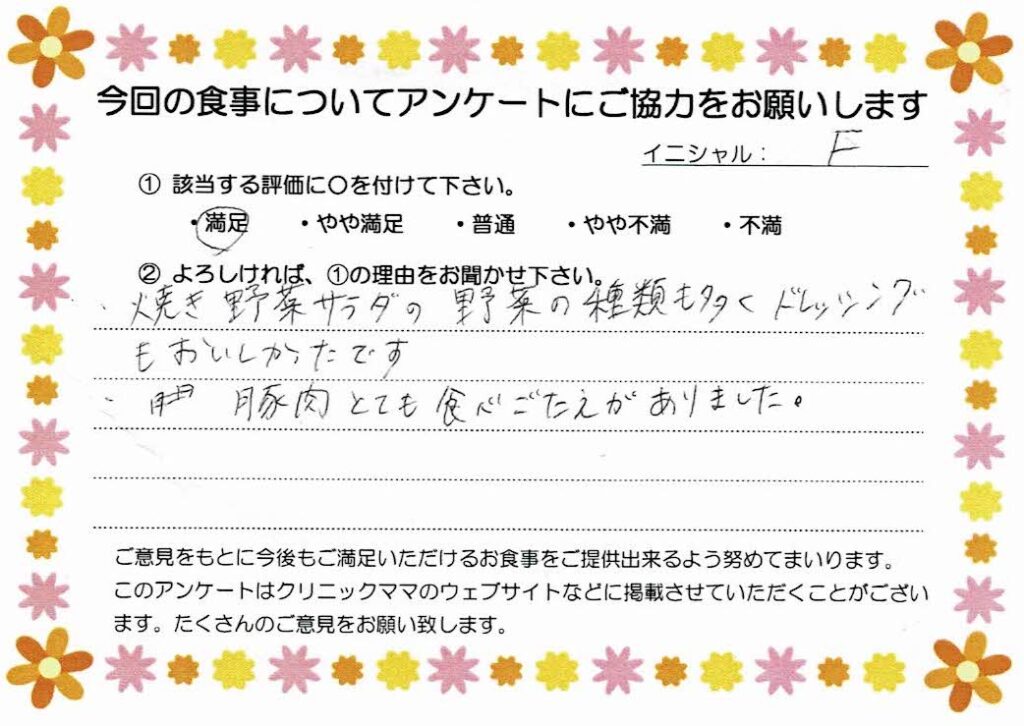 今回の食事についてアンケートにご協力をお願いします
イニシャル： F
① 該当する評価に〇を付けて下さい。
・満足 ・やや満足 ・普通 ・やや不満 ・不満
② よろしければ、①の理由をお聞かせ下さい。
・焼き野菜サラダの野菜の種類も多くドレッシング
もおいしかったです
・豚肉とても食べごたえがありました。
ご意見をもとに今後もご満足いただけるお食事をご提供出来るよう努めてまいります。
このアンケートはクリニックママのウェブサイトなどに掲載させていただくことがござい
ます。たくさんのご意見をお願い致します。